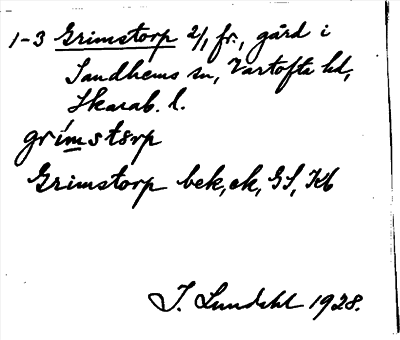 1-3 Grimstorp 2/1 fr., gård i
Sandhems sn, Vartofta hd,
Skarab. l.
grímstørp
Grimstorp bek, ek, GS, Kb
I. Lundahl 1928.